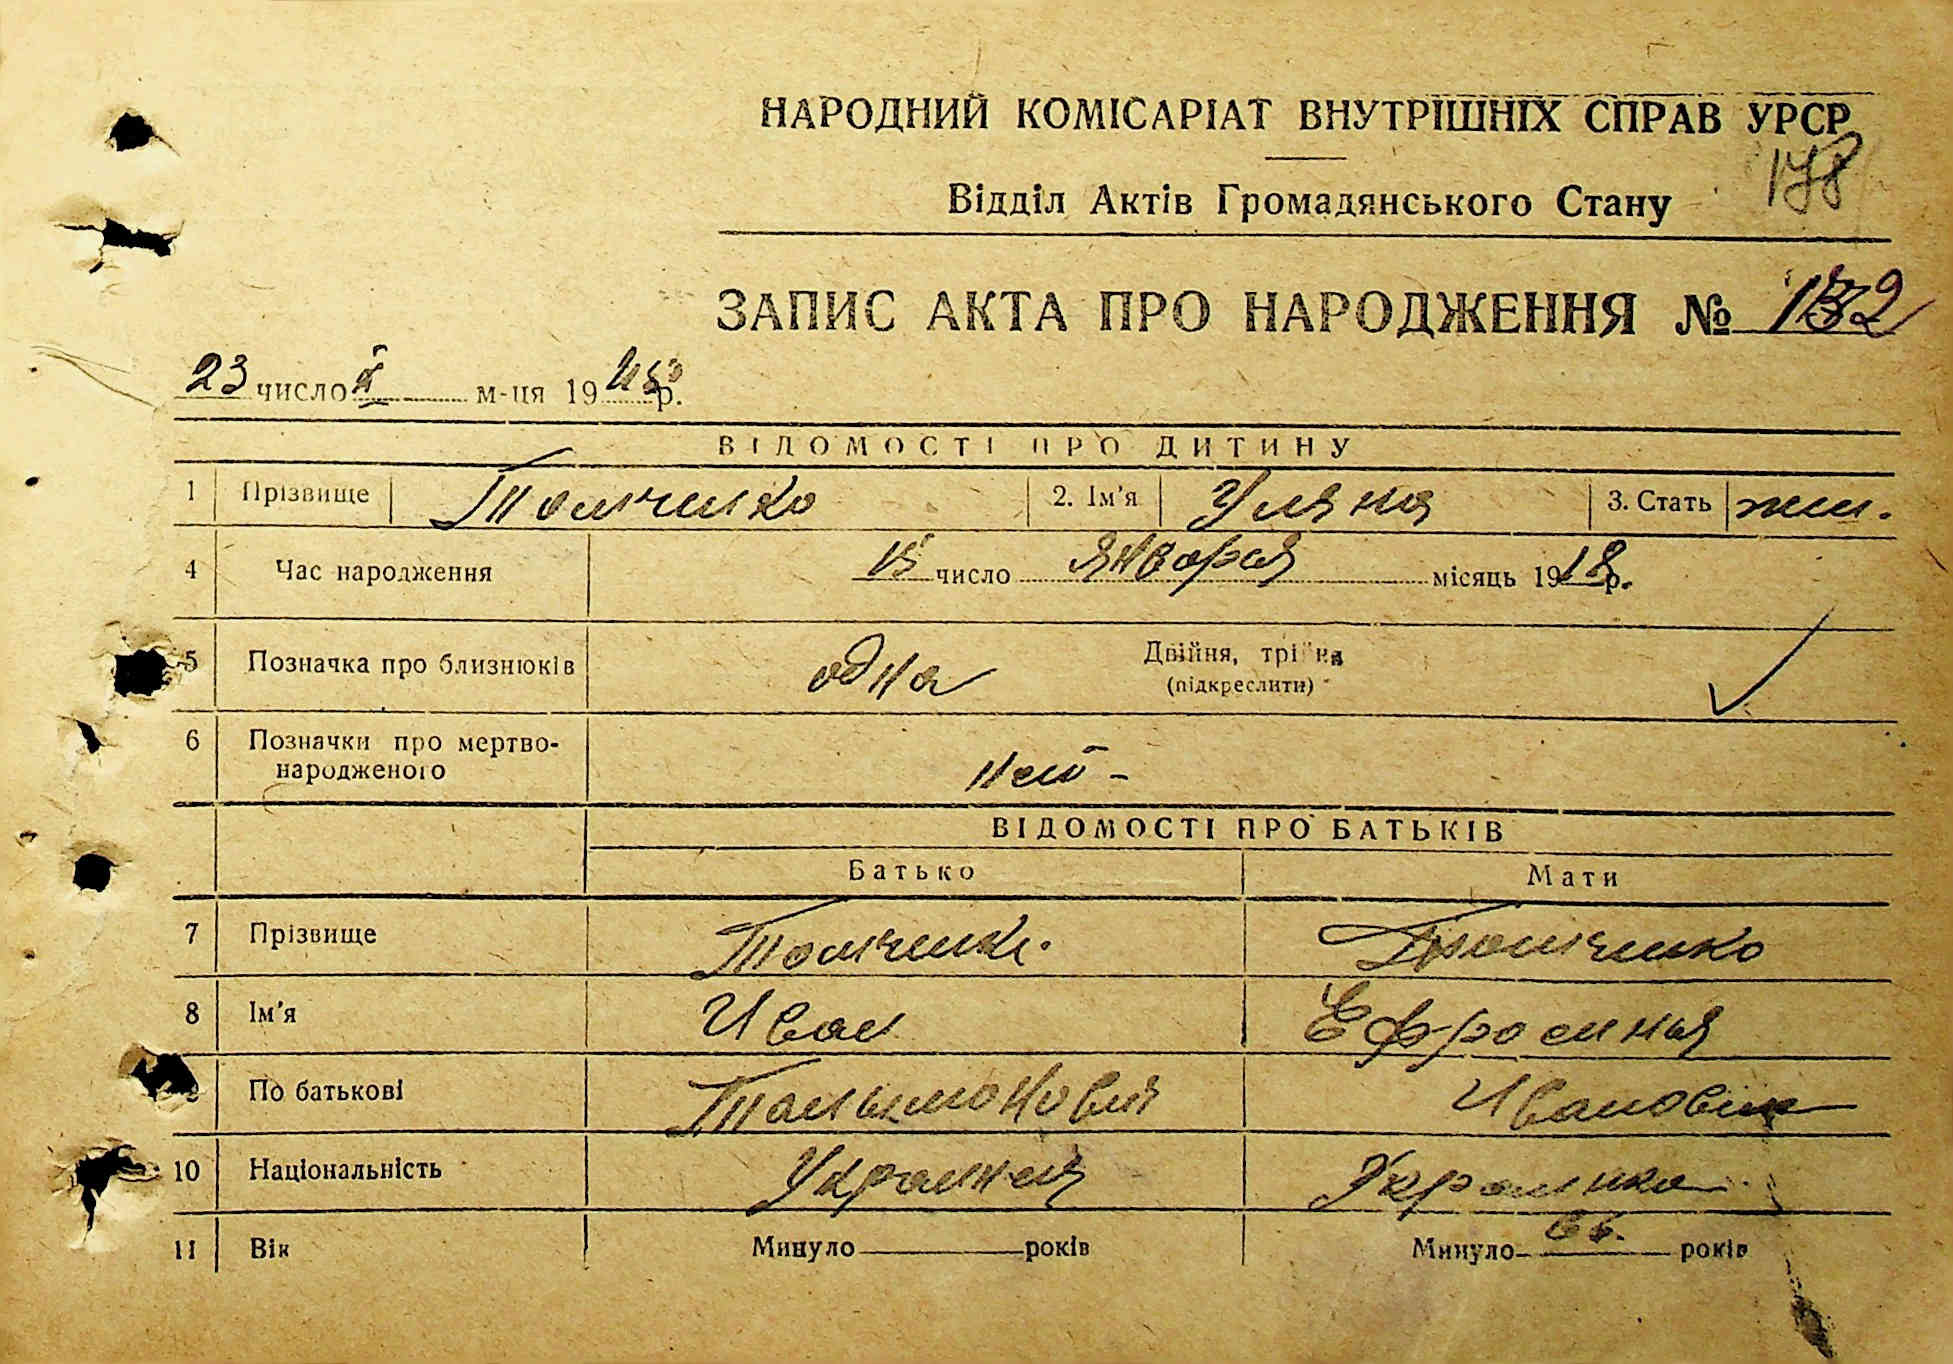 НАРОДНИЙ КОМІСАРІАТ ВНУТРІШНІХ СПРАВ УРСР
178
Відділ Актів Громадянського Стану
ЗАПИС АКТА ПРО НАРОДЖЕННЯ №
23 число X м-ця 1945 р.
ВІДОМОСТІ ПРО ДИТИНУ
1 Прізвище Томченко 2. Ім'я Уляна 3. Стать жен.
4 Час народження 15 число января місяць 1918 р.
5 Позначка про близнюків одна Двійня, трійня
(підкреслити)
6 Позначки про мертво-
народженого нет -
ВІДОМОСТІ ПРО БАТЬКІВ
Батько Мати
7 Прізвище Томченко Томченко
8 Ім'я Иван Ефросинья
9 По батькові Ивановна
10 Національність Украинец Украинка
11 Вік Минуло років Минуло років